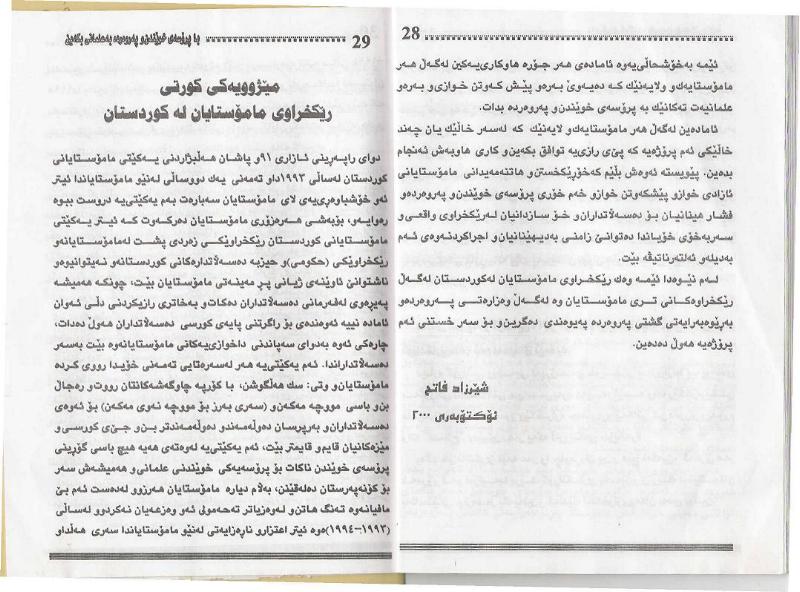 28
ئێمە بەخۆشحاڵی‌یەوە ئامادەی هەر جۆرە هاوکاری‌یەکین لەگەڵ هەر
مامۆستایەك‌و ولایەنێك کە دەیەوێ بەرەو پێش کەوتن خوازی‌و بەرەو
علمانیەت تەکانێك بە پرۆسەی خوێندن‌و پەروەردە بدات.
ئامادەین لەگەڵ هەر مامۆستایەك‌و لایەنێك کە لەسەر خاڵێك یان چەند
خاڵێکی ئەم پرۆژەیە کە پێ‌ی رازی‌یە توافق بکەین‌و کاری هاوبەش ئەنجام
بدەین. پێویستە ئەوەش بڵێم کەخۆڕێکخستن‌و هاتنەمەیدانی مامۆستایانی
ئازادی خوازو پێشکەوتن خوازو خەم خۆری پرۆسەی خوێندن‌و پەروەردەو
فشار هێنانیان بۆ دەسەڵاتداران‌و خۆ سازدانیان لەرێکخراوی واقعی‌و
سەربەخۆی خۆیاندا دەتوانێ زامنی بەدیهێنانیان‌و اجراکردنەوەی ئەم
بەدیلەو ئەلتەرناتیڤە بێت.
لەم نێوەدا ئێمە وەك رێکخراوی مامۆستایان لەکوردستان لەگەڵ
رێکخراوەکانی تری مامۆستایان وە لەگەڵ وەزارەتی پەروەردەو
بەڕێوەبەرایەتی گشتی پەروەردە پەیوەندی دەگرین‌و بۆ سەر خستنی ئەم
پرۆژەیە هەوڵ دەدەین.
شێرزاد فاتح
ئۆکتۆبەری ٢٠٠٠
با پرۆسەی خوێندن‌و پەروەردە بەعلمانی بکەین
29
مێژوویەکی کورتی
رێکخراوی مامۆستایان لە کوردستان
دوای راپەڕینی ئازاری ٩١و پاشان هەڵبژاردنی یەکێتی مامۆستایانی
کوردستان لەساڵی ١٩٩٣داو تەمەنی یەك دووساڵی لەنێو مامۆستایاندا ئیتر
ئەو خۆشباوەڕی‌یەی لای مامۆستایان سەبارەت بەم یەکێتی‌یە دروست ببوە
رەوایەو، بۆبەشی هەرەزۆری مامۆستایان دەرکەوت کە ئیتر یەکێتی
مامۆستایانی کوردستان رێکخراوێکی زەردی پشت لەمامۆستایانەو
رێکخراوێکی (حکومی)و حیزبە دەسەڵاتدارەکانی کوردستانەو نەیتوانیوەو
ناشتوانێ ئاوێنەی ژیانی پڕ مەینەتی مامۆستایان بێت، چونکە هەمیشە
پەیڕەوی لەفەرمانی دەسەڵاتداران دەکات‌و بەخاتری رازیکردنی دڵی ئەوان
ئامادە نییە ئەوەندەی بۆ راگرتنی پایەی کورسی دەسەڵاتداران هەوڵ دەدات،
چارەکی ئەوە بەدوای سەپاندنی داخوازی‌یەکانی مامۆستایانەوە بێت بەسەر
دەسەڵاتداراندا. ئەم یەکێتی‌یە هەر لەسەرەتایی تەمەنی خۆیدا رووی کردە
مامۆستایان‌و وتی: سك هەڵگوشن، با کۆرپە چاوگەشەکانتان رووت‌و رەجاڵ
بن‌و باسی مووچە مەکەن‌و (سەری بەرز بۆ مووچە نەوی مەکەن) بۆ ئەوەی
دەسەڵاتداران‌و بەرپرسان دەوڵەمەندو دەوڵەمەندتر بن‌و جێ‌ی کورسی‌و
مێزەکانیان قایم‌و قایمتر بێت، ئەم یەکێتی‌یە لەوەتەی هەیە هیچ باسی گۆڕینی
پرۆسەی خوێندن ناکات بۆ پرۆسەیەکی خوێندنی علمانی‌و هەمیشەش سەر
بۆ کۆنەپەرستان دەلەقێنن، بەڵام دیارە مامۆستایان هەرزوو لەدەست ئەم بێ
مافیانەوە تەنگ هاتن‌و لەوەزیاتر تەحەمولی ئەو وەزعەیان نەکردوو لەساڵی
(١٩٩٣-١٩٩٤)ەوە ئیتر اعتزازو ناڕەزایەتی لەنێو مامۆستایاندا سەری هەڵداو